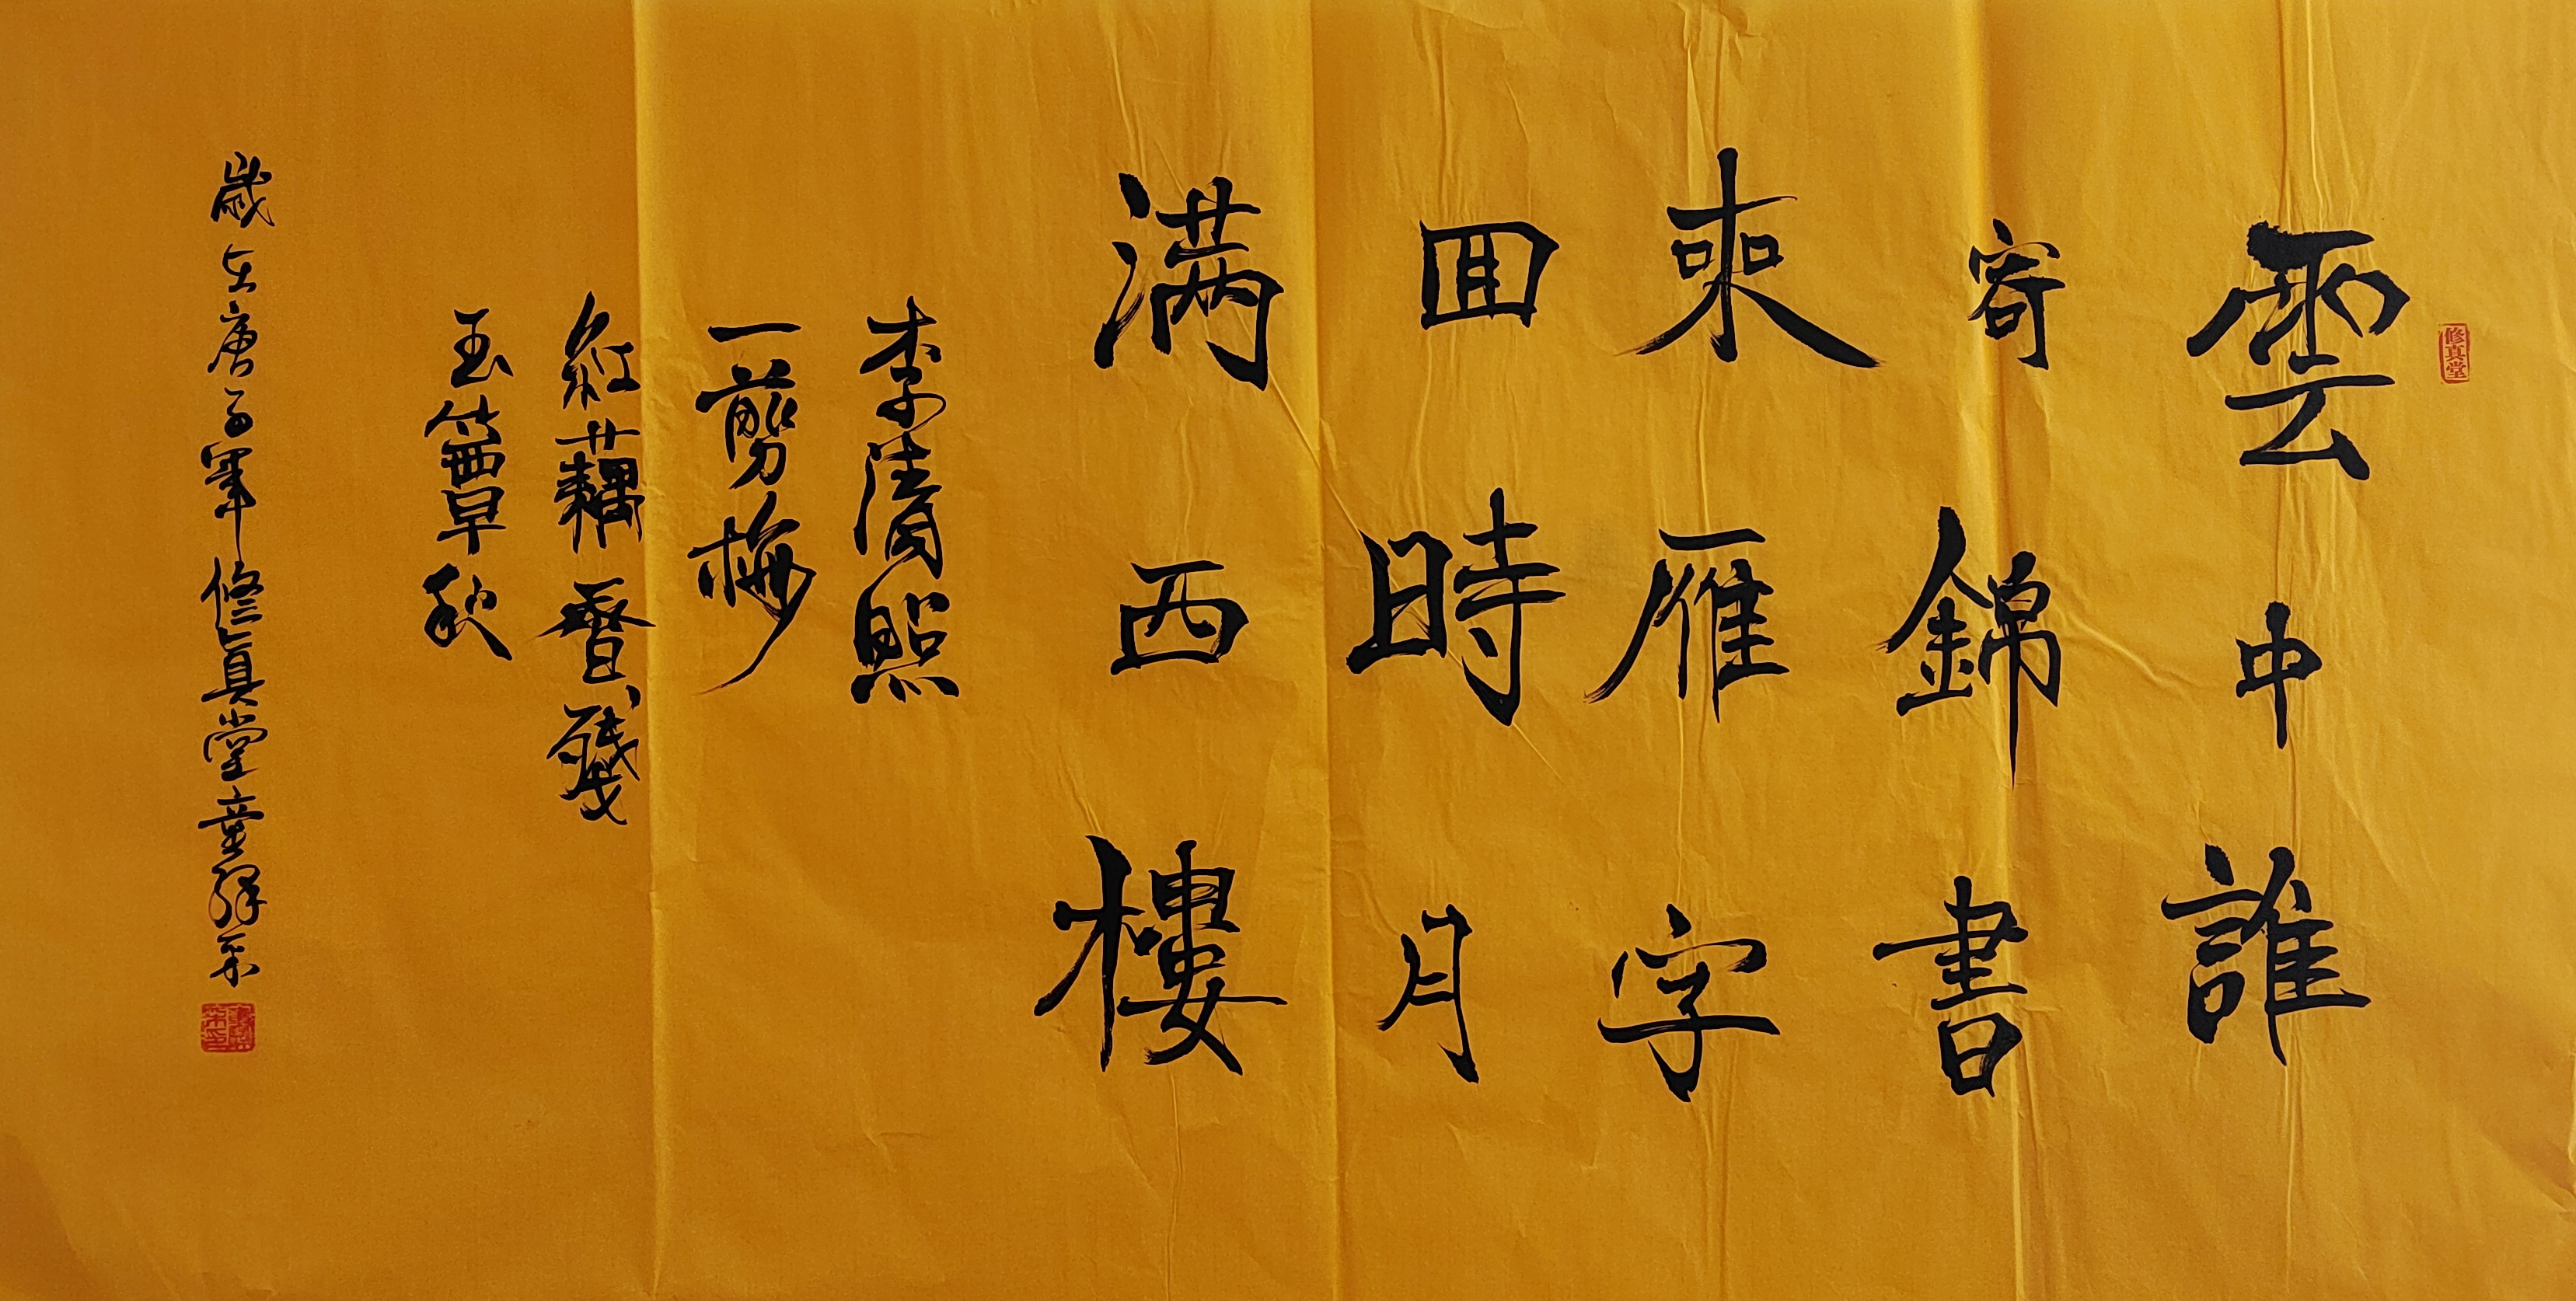 修真堂
雲中誰
寄錦書
來雁字
回時月
满西樓
李清照
一剪梅
紅藕香殘
玉簟秋
歲在庚子年修真堂童